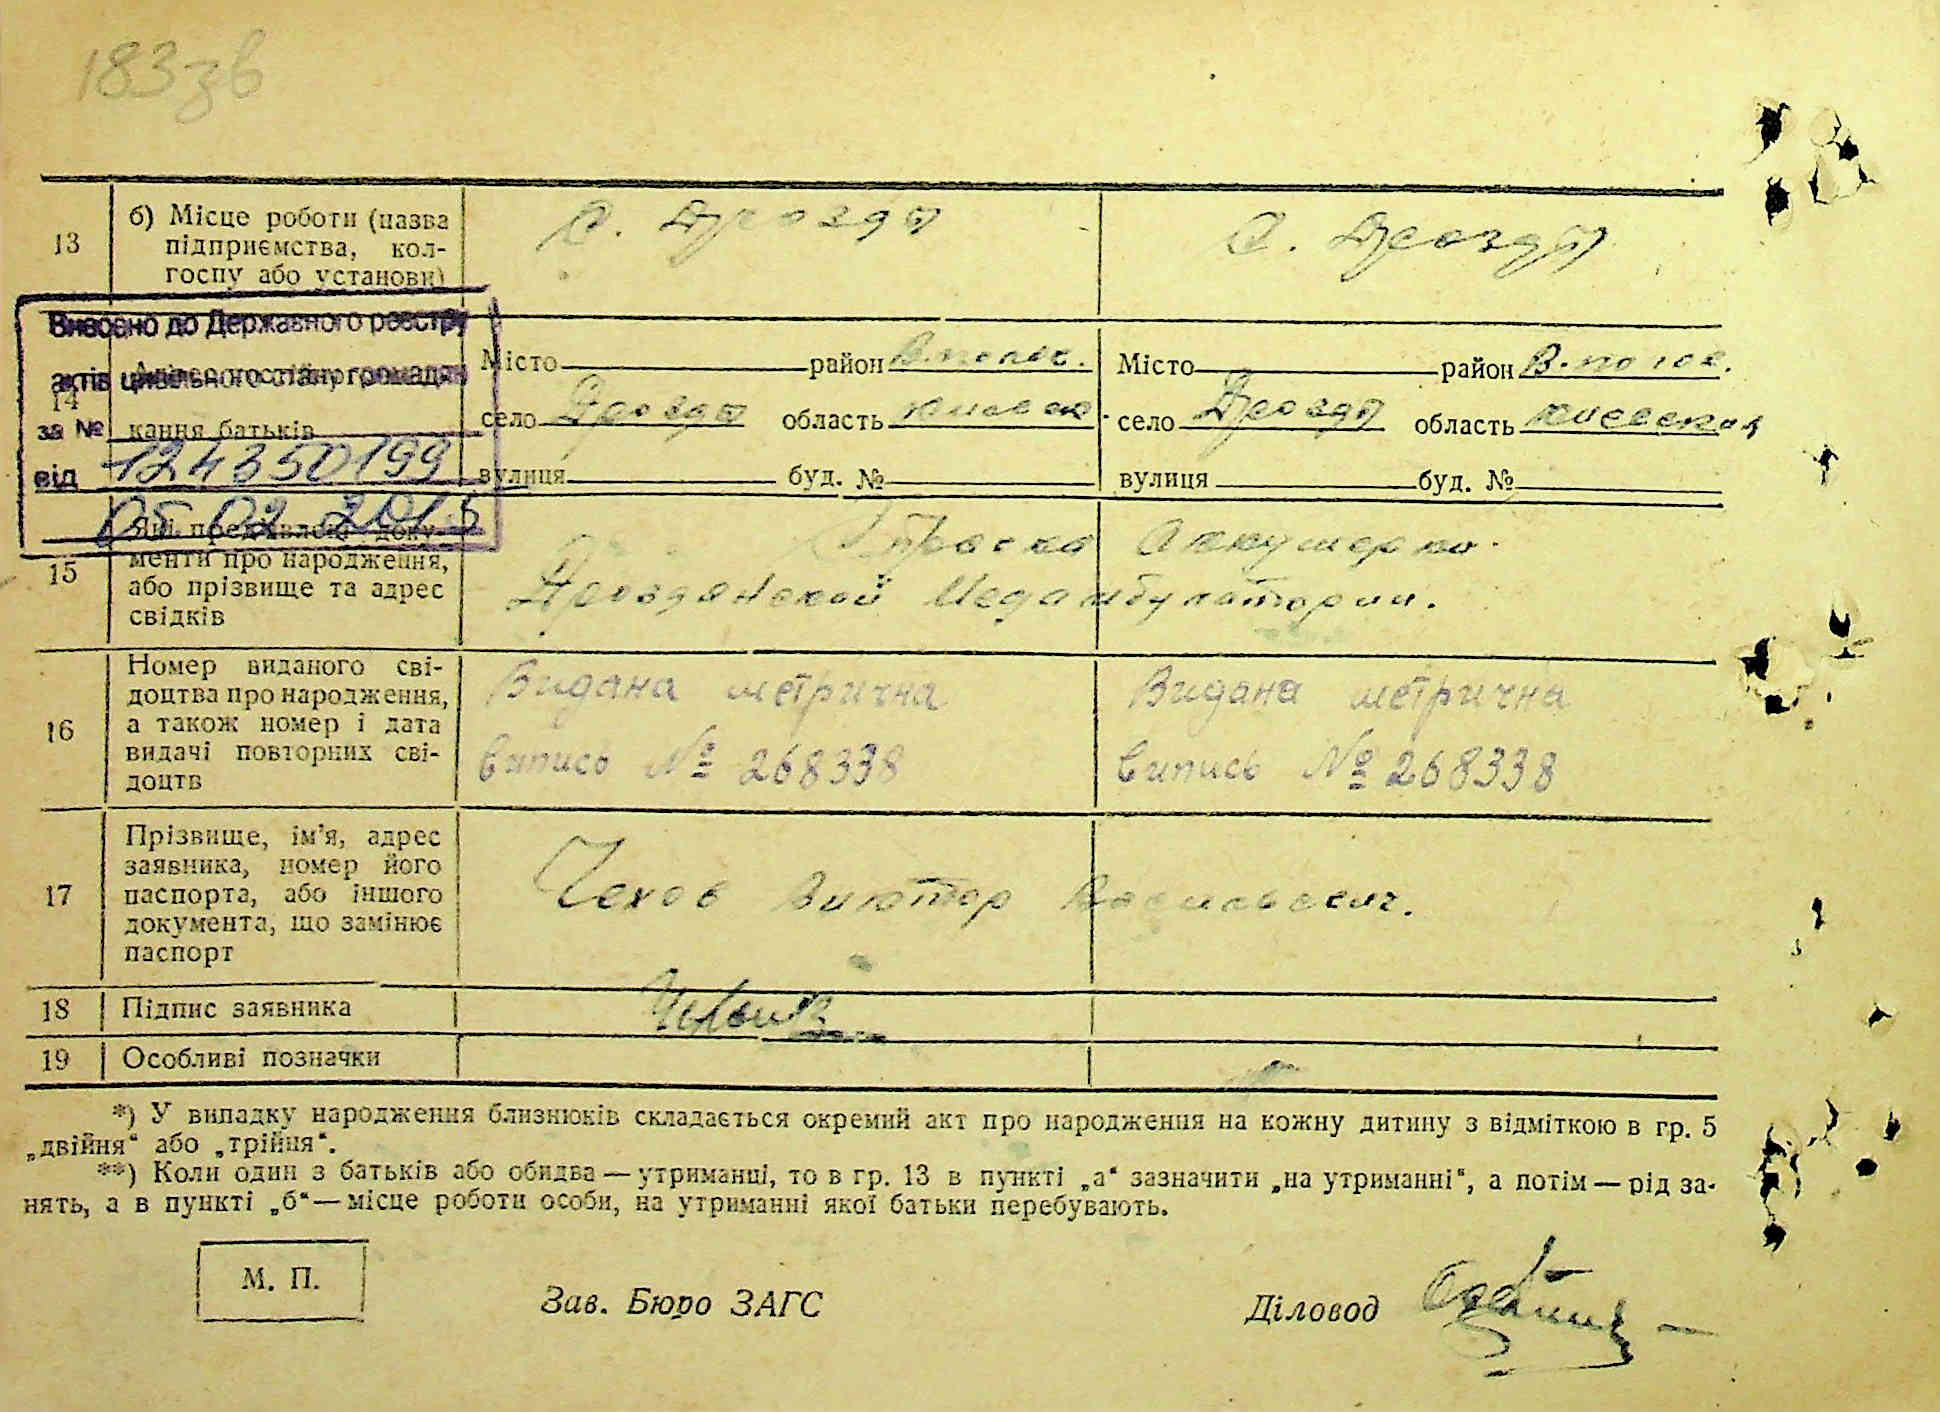 183зв
13 б) Місце роботи (назва підприємства, колгоспу або установи) С. Дрозды С. Дрозды
Внесено до Державного реєстру
актів цивільного стану громадян
за №
від 124350199
05 02 2015
14
кання батьків
Місто район В.полов. Місто район В.полов.
село Дрозды область киевск. село Дрозды область киевская
вулиця буд. № вулиця буд. №
15 Які пред'явлені документи про народження, або прізвище та адрес свідків
Справка Аккушерки
Дроздянской Медамбулатории.
16 Номер виданого свідоцтва про народження, а також номер і дата видачі повторних свідоцтв
Видана метрична Видана метрична
випись № 268338 випись № 268338
17 Прізвище, ім'я, адрес заявника, номер його паспорта, або іншого документа, що замінює паспорт
Чехов Виктор Васильевич.
18 Підпис заявника
19 Особливі позначки
*) У випадку народження близнюків складається окремий акт про народження на кожну дитину з відміткою в гр. 5
„двійня“ або „трійня“.
**) Коли один з батьків або обидва — утриманці, то в гр. 13 в пункті „а“ зазначити „на утриманні“, а потім — рід за-
нять, а в пункті „б“ — місце роботи особи, на утриманні якої батьки перебувають.
М. П.
Зав. Бюро ЗАГС Діловод